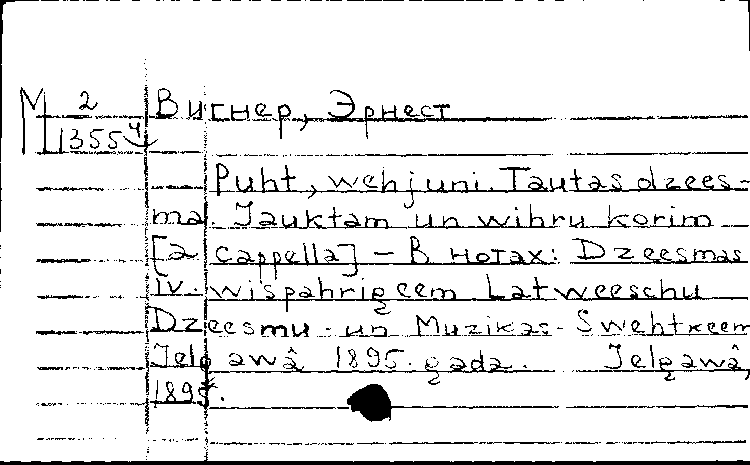 М 2 Вигнер, Эрнест
1355
Puht, wehjuni. Tautas dzees-
ma. Jauktam un wihru korim
[a cappella] – В нотах: Dzeesmas
IV. wispahrigeem Latweeschu
Dzeesmu- un Muzikas- Swehtkeem
Jelgawâ 1895. gada. Jelgawâ,
1895.